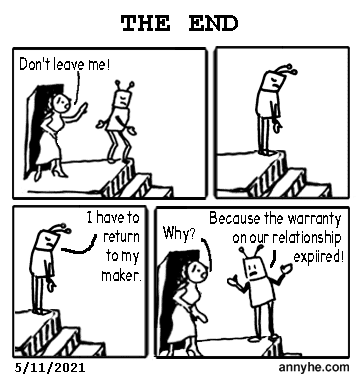 THE END
Don't leave me!
I have to
return
to my
maker.
Why?
Because the warranty
on our relationship
expiired!
5/11/2021
annyhe.com